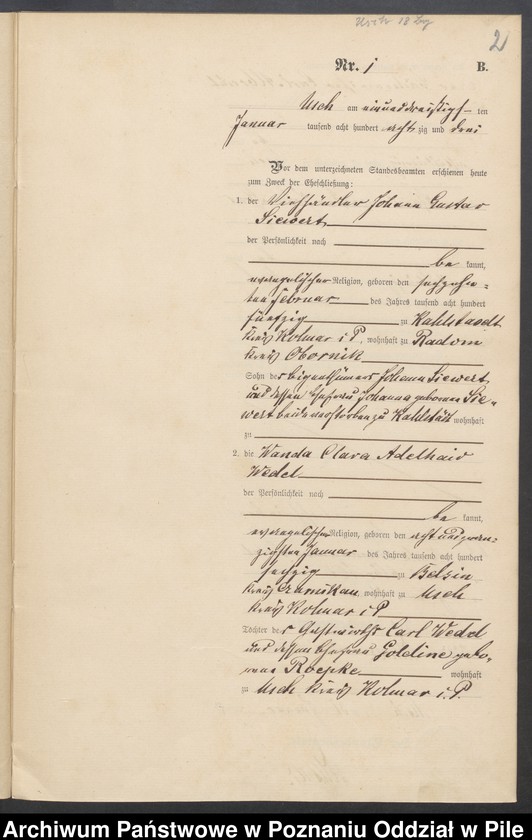 Usch 18
2
Nr. 1 B.
Usch am einunddreißigs-ten
Januar tausend acht hundert achtzig und drei
Vor dem unterzeichneten Standesbeamten erschienen heute
zum Zweck der Eheschließung:
1. der Viehhändler Johann Gustav
Siewert
der Persönlichkeit nach
be kannt,
evangelischer Religion, geboren den sechzehn=
ten Februar des Jahres tausend acht hundert
fünfzig zu Kahlstaedt
Kreis Kolmar i/P, wohnhaft zu Radom
Kreis Obornik
Sohn des Eigenthümers Johann Siewert
und dessen Ehefrau Johanna geborenen Sie-
wert beide verstorben zu Kahlstädt wohnhaft
zu
2. die Wanda Clara Adelhaid
Wedel
der Persönlichkeit nach
be kannt,
evangelischer Religion, geboren den acht und zwan-
zigsten Januar des Jahres tausend acht hundert
sechzig zu Belsin
Kreis Czarnikau, wohnhaft zu Usch
Kreis Kolmar i/P
Tochter des Gastwirths Carl Wedel
und dessen Ehefrau Goldine gebo-
rene Roepke wohnhaft
zu Usch Kreis Kolmar i. P.
Archiwum Państwowe w Poznaniu Oddział w Pile